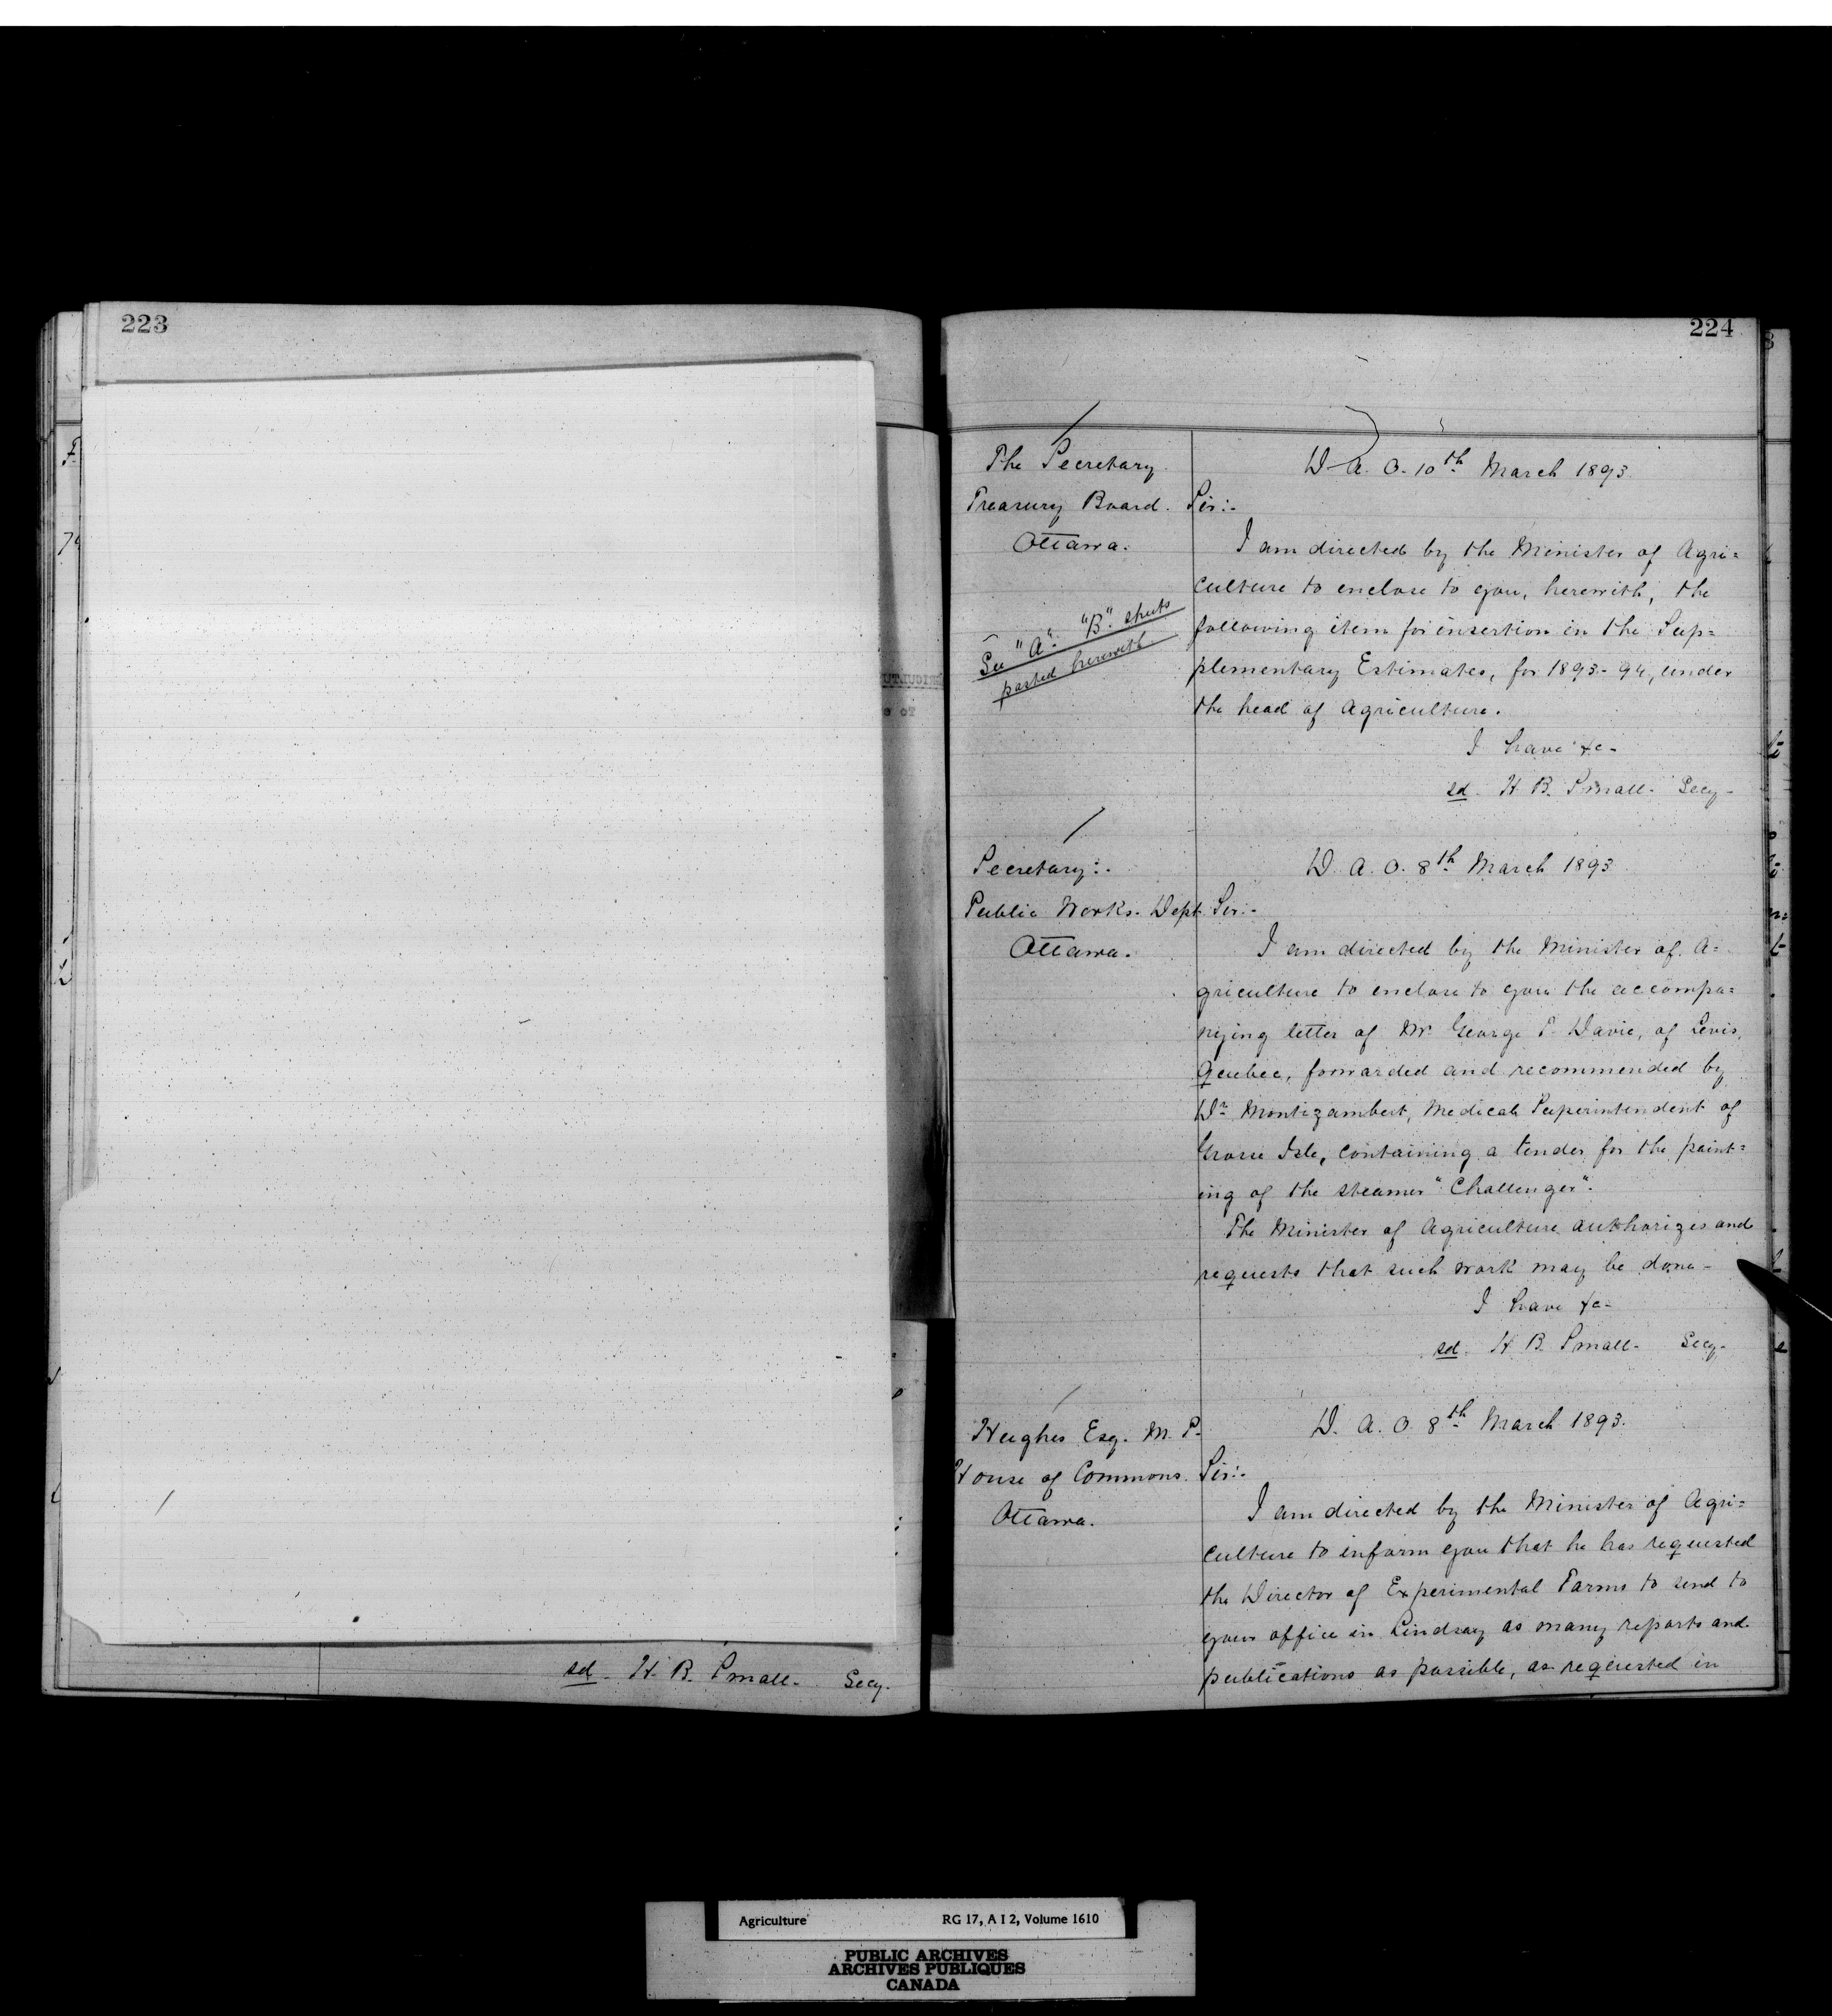 223
sd. H. B. Small. Secy.
224
The Secretary
Treasury Board.
Ottawa.
See "A". "B". sheets
pasted herewith
D. A. O. 10th March 1893
Sir:-
I am directed by the Minister of Agri=
culture to enclose to you, herewith, the
following item for insertion in the Sup=
plementary Estimates, for 1893-94, under
the head of Agriculture.
I have &c-
sd. H. B. Small. Secy-
Secretary:-
Public Works. Dept.
Ottawa.
D. A. O. 8th March 1893
Sir:-
I am directed by the Minister of A=
griculture to enclose to you the accompa=
nying letter of Mr. George T. Davie, of Levis,
Quebec, forwarded and recommended by
Dr. Montizambert, Medical Superintendent of
Grosse Isle, containing a tender for the paint=
ing of the steamer "Challenger".
The Minister of Agriculture authorizes and
requests that such work may be done-
I have &c-
sd. H. B. Small- Secy-
Hughes Esq. M. P.
House of Commons.
Ottawa.
D. A. O. 8th March 1893.
Sir:-
I am directed by the Minister of Agri=
culture to inform you that he has requested
the Director of Experimental Farms to send to
your office in Lindsay as many reports and
publications as possible, as requested in
Agriculture RG 17, A I 2, Volume 1610
PUBLIC ARCHIVES
ARCHIVES PUBLIQUES
CANADA